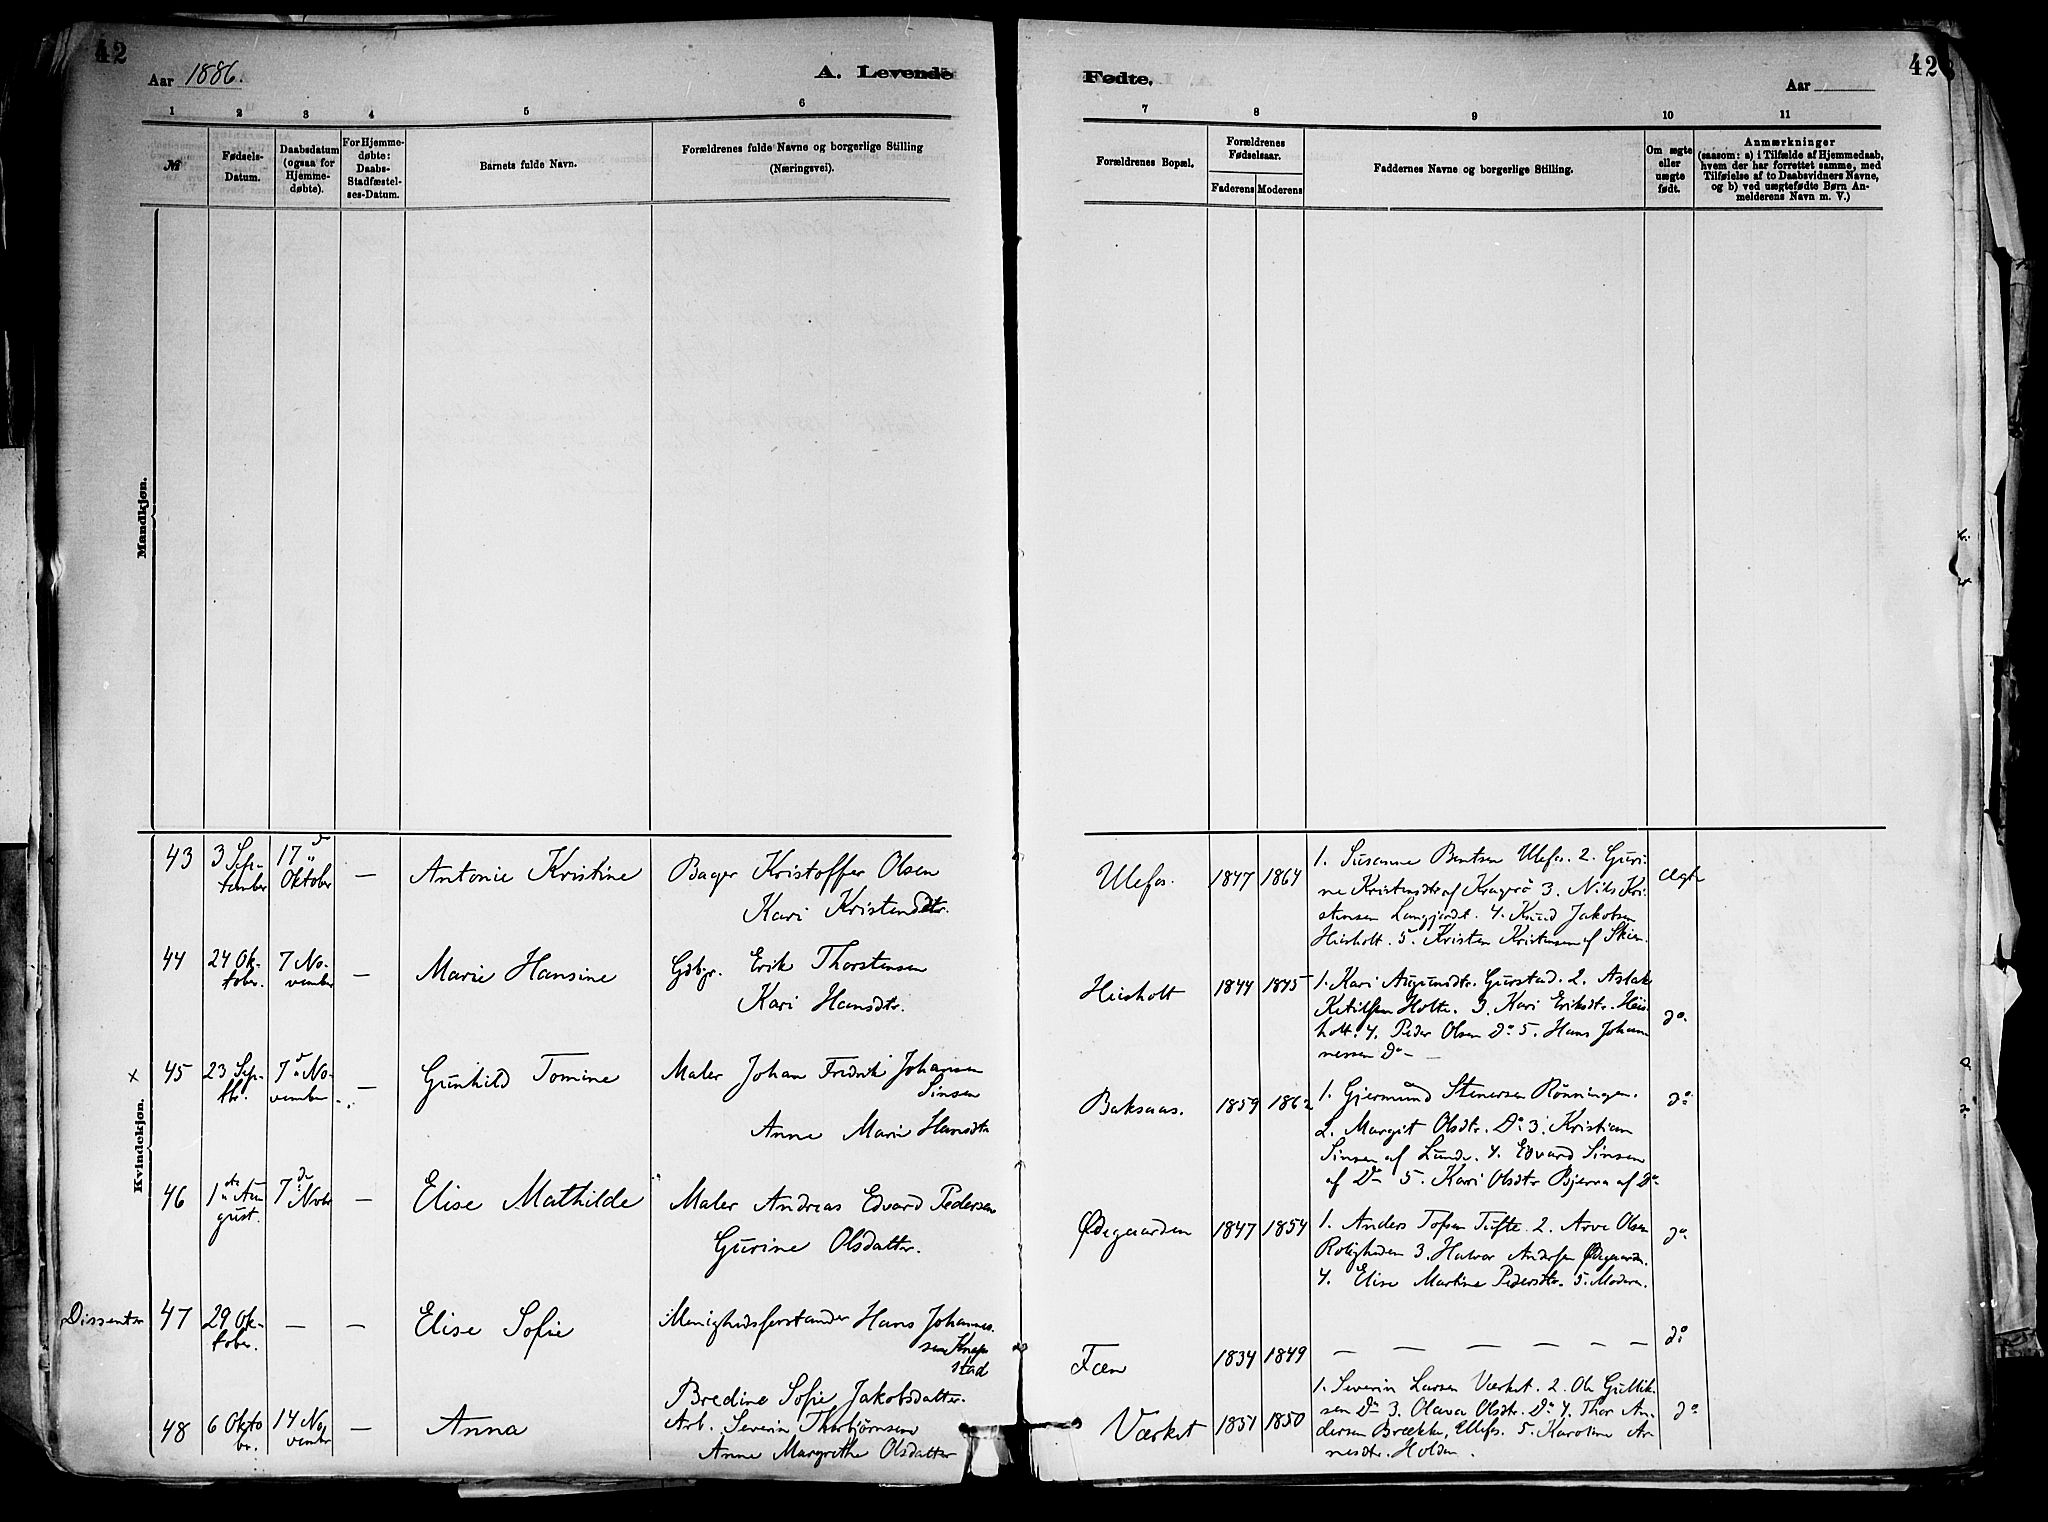 42
Aar 1886.
A. Levende
Fødte.
Aar
42
1 2 3 4 5 6 7 8 9 10 11
№
Fødsels-
Datum.
Daabsdatum
(ogsaa for
Hjemme-
døbte).
For Hjemme-
døbte:
Daabs-
Stadfæstel-
ses-Datum.
Barnets fulde Navn.
Forældrenes fulde Navne og borgerlige Stilling
(Næringsvei).
Forældrenes Bopæl.
Forældrenes
Fødselsaar.
Faderens Moderens
Faddernes Navne og borgerlige Stilling.
Om ægte
eller
uægte
født.
Anmærkninger
(saasom: a) i Tilfælde af Hjemmedaab,
hvem der har forrettet samme, med
Tilføielse af to Daabsvidners Navne,
og b) ved uægtefødte Børn An-
melderens Navn m. V.)
Mandkjøn.
Kvindekjøn.
43
3 Sep-
tember
17 d
Oktober
—
Antonie Kristine
Bager Kristoffer Olsen
Kari Kristensdtr.
Ulefos.
1847 1864
1. Susanne Bentsen Ulefos. 2. Guri-
ne Kristensdtr af Kragerö 3. Nils Kri-
stensen Langjordet. 4. Knud Jakobsen
Heisholt. 5. Kristen Kristensen af Skien.
Ægte
44
24 Ok-
tober.
7 No-
vember
—
Marie Hansine
Gdbgr. Erik Thorstensen
Kari Hansdtr.
Heisholt
1844 1845
1. Kari Augundtr. Gurstad. 2. Aslak
Ketilsen Holte. 3. Kari Eriksdtr. Heis-
holt. 4. Peder Olsen Do 5. Hans Johan-
nessen Do —
do
x
45
23 Sep-
tbr.
7 d No-
vember
—
Gunhild Tomine
Maler Johan Fredrik Johansen
Sinsen
Anne Marie Hansdtr
Baksaas.
1859 1862
1. Gjermund Stenersen Rönningen.
2. Margit Olsdtr. Do 3. Kristian
Sinsen af Lunde. 4. Edvard Sinsen
af Do 5. Kari Olsdtr Bjerva af Do
do
46
1 ste Au-
gust.
7 de Novbr
—
Elise Mathilde
Maler Andreas Edvard Pedersen
Gurine Olsdatter.
Ødegaarden
1847 1854
1. Anders Tofsen Tufte. 2. Arve Olsen
Roligheden 3. Halvor Andersen Ødegaarden.
4. Elise Martine Pedersdtr. 5. Moderen.
do
Dissenter
47
29 Ok-
tober.
—
—
Elise Sofie
Menighedsforstander Hans Johannes-
sen Knap-
stad
Bredine Sofie Jakobsdatter.
Fæn
1834 1849
— — — — —
do
48
6 Okto
br.
14 No-
vembr
—
Anna
Arb. Severin Thorbjørnsen
Anne Margrethe Olsdatter
Værket
1851 1850
1. Severin Larsen Værket. 2. Ole Gullik-
sen Do 3. Olava Olsdtr. Do 4. Thor An-
dersen Brække, Ulefos. 5. Karoline Ar-
nesdtr. Holden.
do